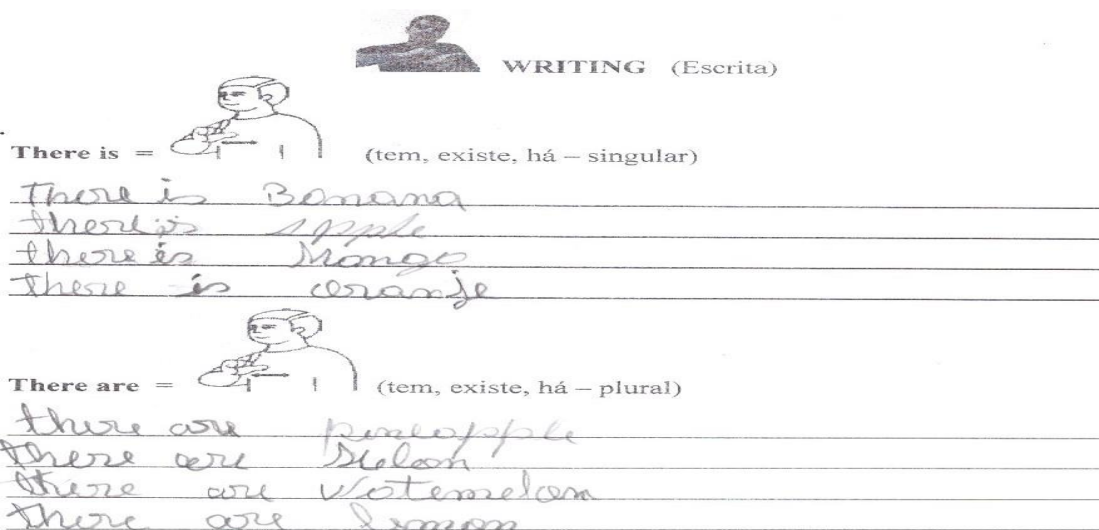 WRITING (Escrita)
There is = (tem, existe, há – singular)
There is Banana
there is apple
there is Mango
there is oranje
There are = (tem, existe, há – plural)
there are pineapple
there are Melon
there are Watemelon
there are limon